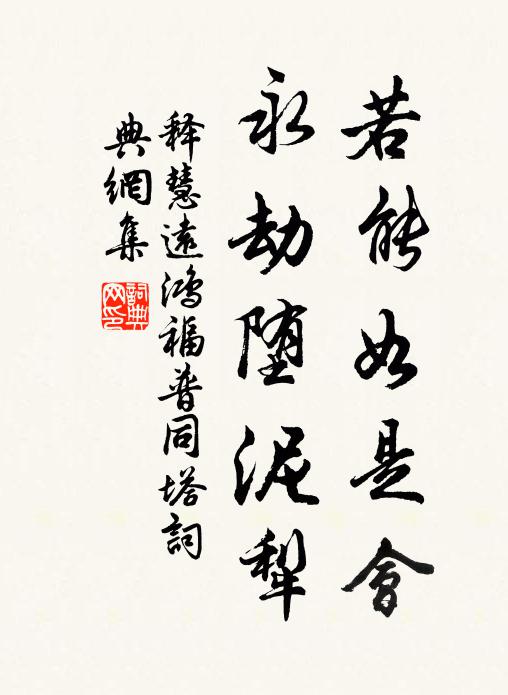 若能如是會
永劫堕泥犁
释慧遠鸿福普同塔詞
典網集
詞典网印